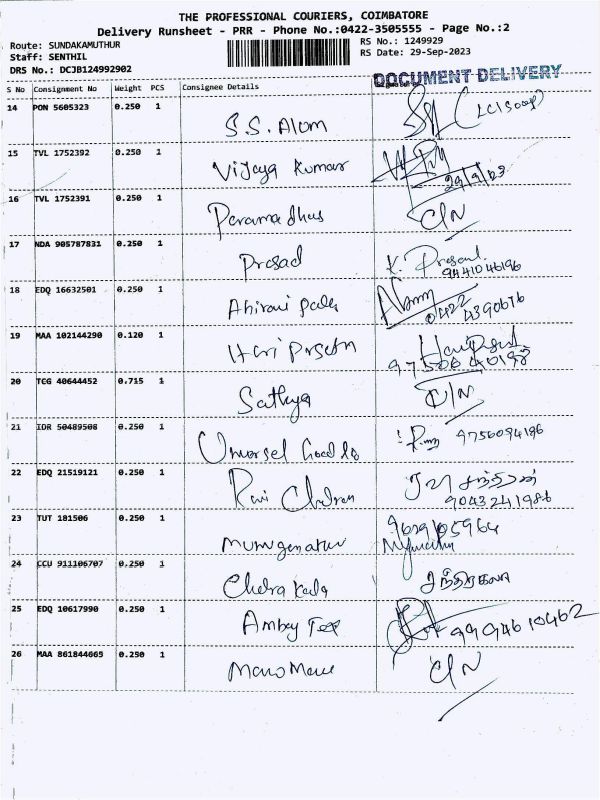 THE PROFESSIONAL COURIERS, COIMBATORE
Delivery Runsheet - PRR - Phone No.:0422-3505555 - Page No.:2
Route: SUNDAKAMUTHUR
RS No.: 1249929
Staff: SENTHIL
RS Date: 29-Sep-2023
DRS No.: DCJB124992902
DOCUMENT DELIVERY
S No Consignment No Weight PCS Consignee Details
14 PON 5605323 0.250 1
S.S. Alom
15 TVL 1752392 0.250 1
Vijaya Kumar
29/9/23
16 TVL 1752391 0.250 1
C/N
17 NDA 905787831 0.250 1
Prasad K. Prasad
9441046196
18 EDQ 16632501 0.250 1
Abirami
0422
4390676
19 MAA 102144290 0.120 1
Hari
20 TCG 40644452 0.715 1
Sathya C/N
21 IDR 50489508 0.250 1
9756094186
22 EDQ 21519121 0.250 1
Ravi
9043241986
23 TUT 181506 0.250 1
24 CCU 911106707 0.250 1
சந்திரகலா
25 EDQ 10617990 0.250 1
9994610462
26 MAA 861844665 0.250 1
C/N